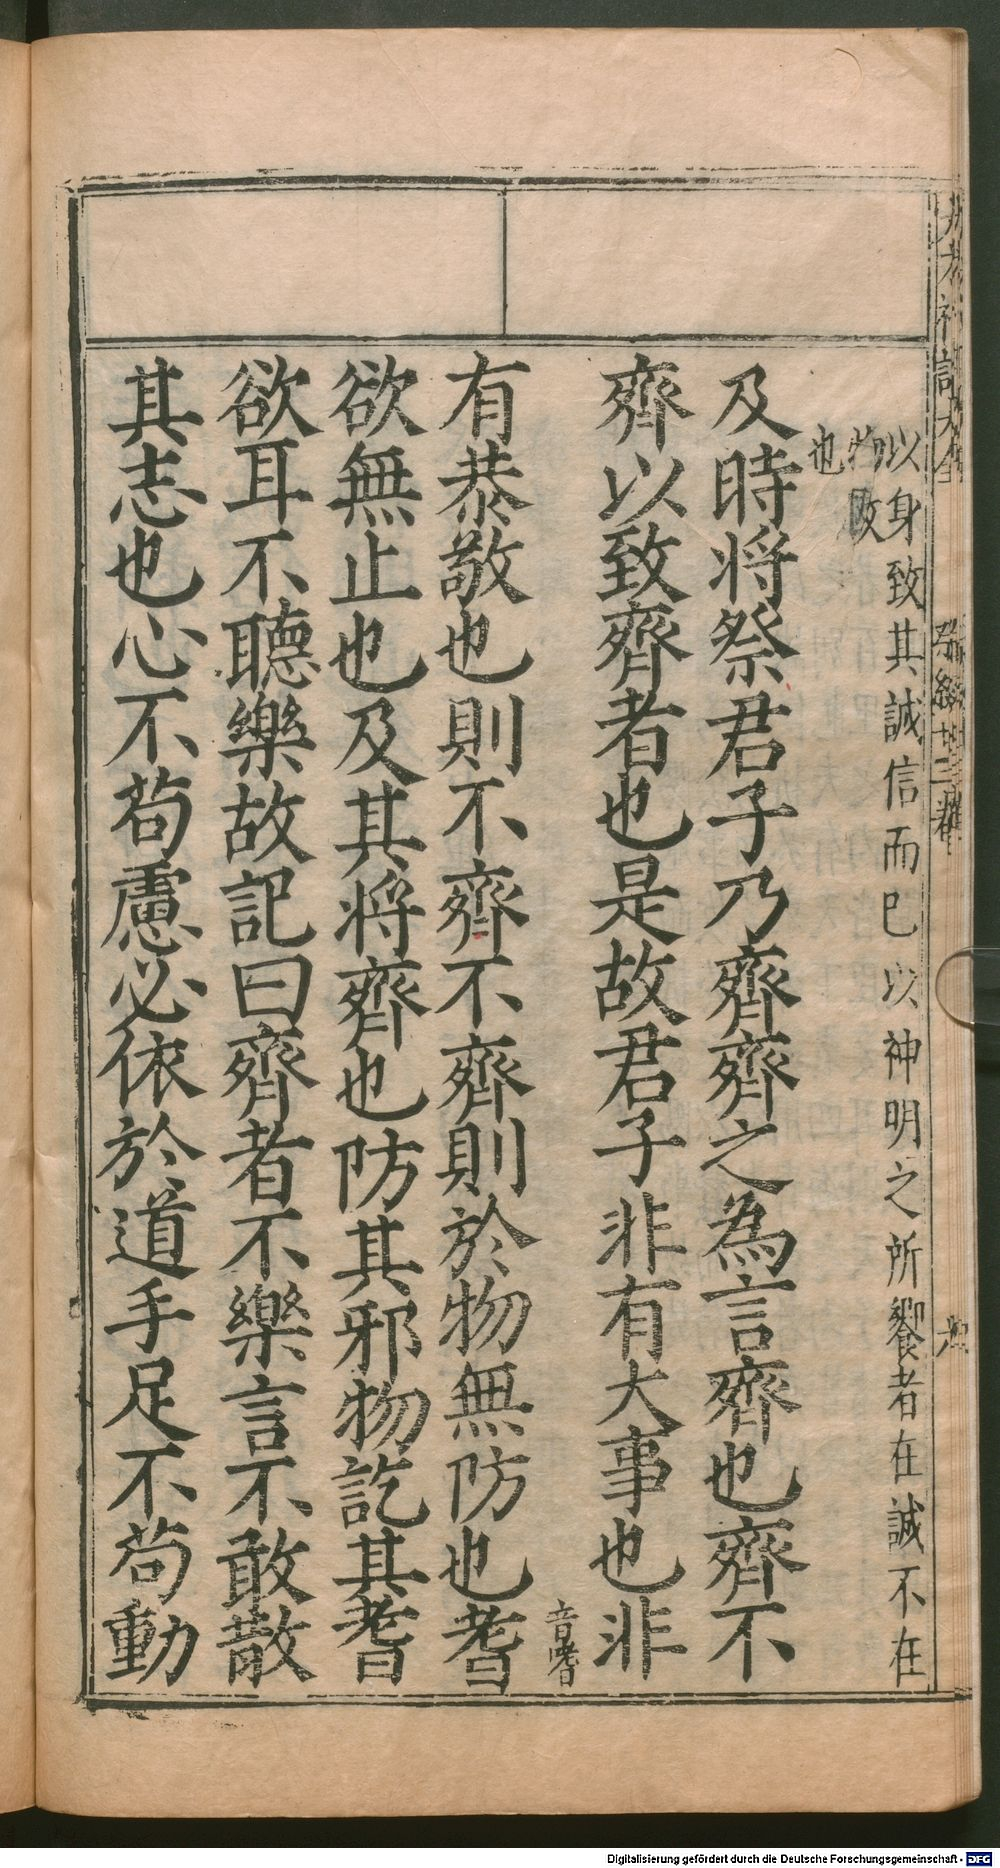 以身致其誠信而已以神明之所饗者在誠不在
物故
也
及時将祭君子乃齊齊之為言齊也齊不
齊以致齊者也是故君子非有大事也非
音嗜
有恭敬也則不齊不齊則於物無防也耆
欲無止也及其将齊也防其邪物訖其耆
欲耳不聽樂故記曰齊者不樂言不敢散
其志也心不苟慮必依於道手足不苟動
Digitalisierung gefördert durch die Deutsche Forschungsgemeinschaft - DFG